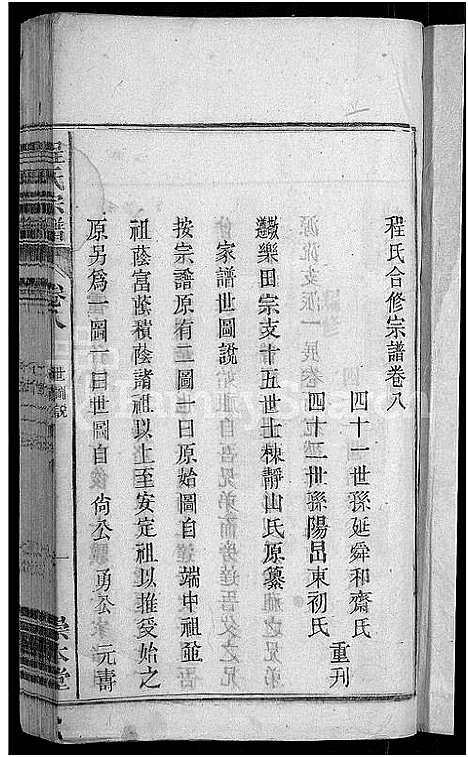 程氏合修宗譜卷八
四十一世孫延舜和齋氏
四十二世孫陽昌東初氏
重刊
樂田宗支十五世士棟靜山氏原纂
家譜世圖說
按宗譜原有二圖一曰原始圖自 端中祖並
祖蔭富蔭積蔭諸祖以上至安定祖以推受始之
原另爲一圖一曰世圖自 尙公 勇公 元壽
程氏宗譜
卷八
世圖說
一
崇本堂